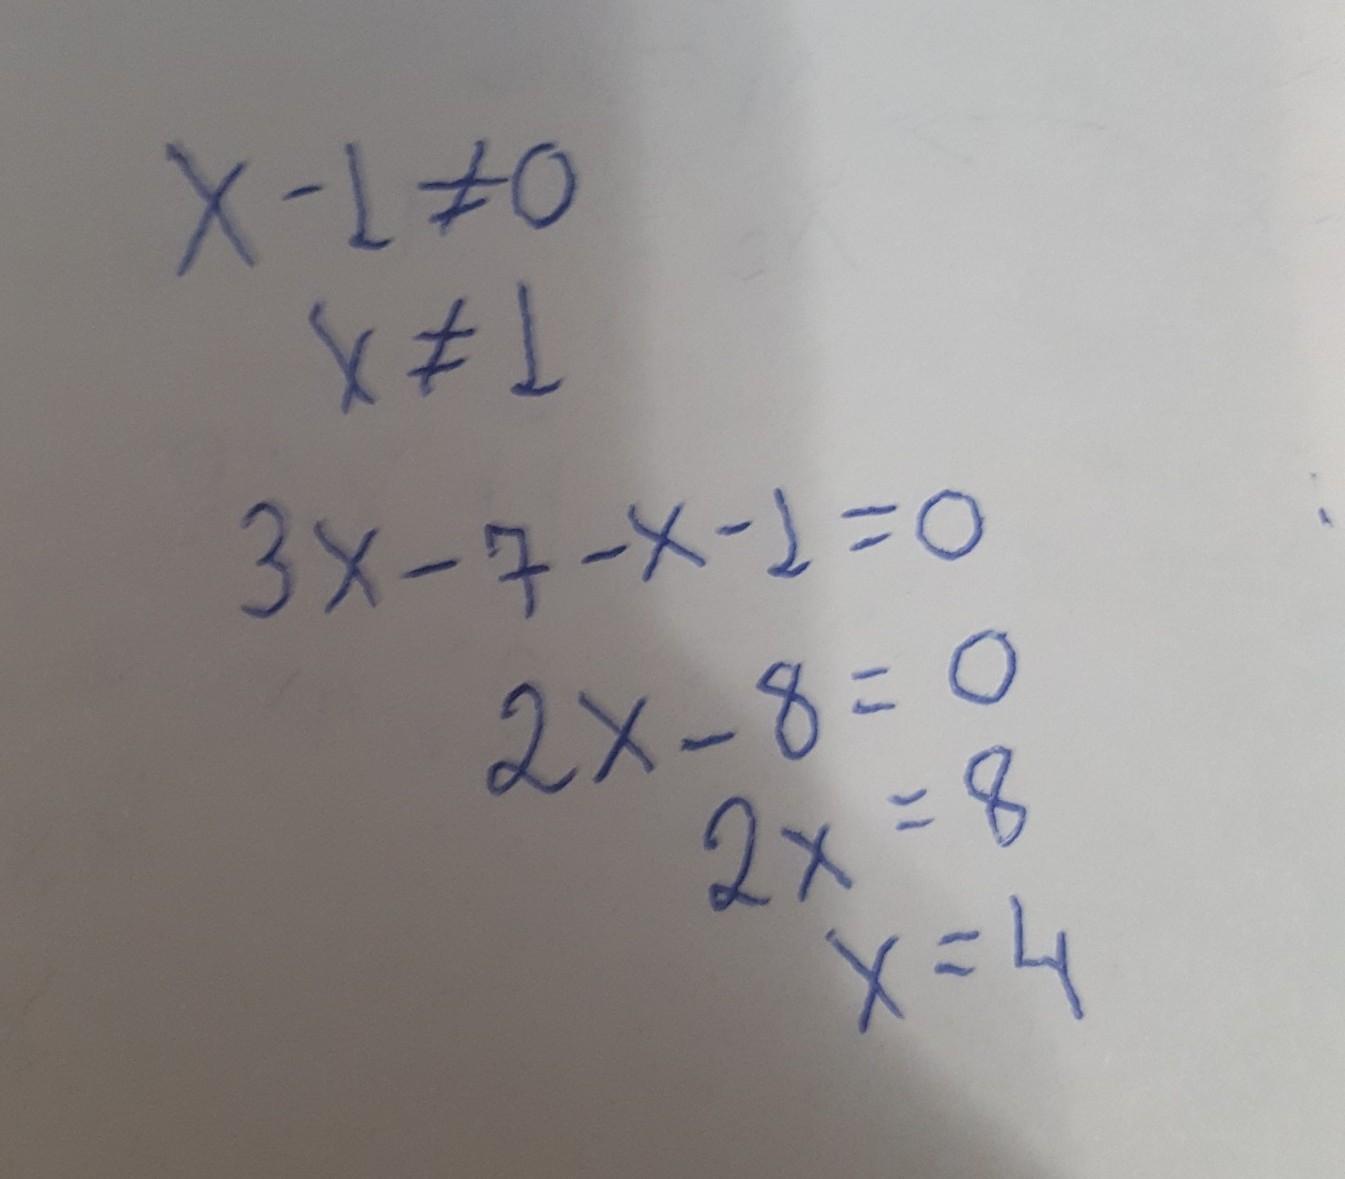 x - 1 ≠ 0
x ≠ 1
3x - 7 - x - 1 = 0
2x - 8 = 0
2x = 8
x = 4